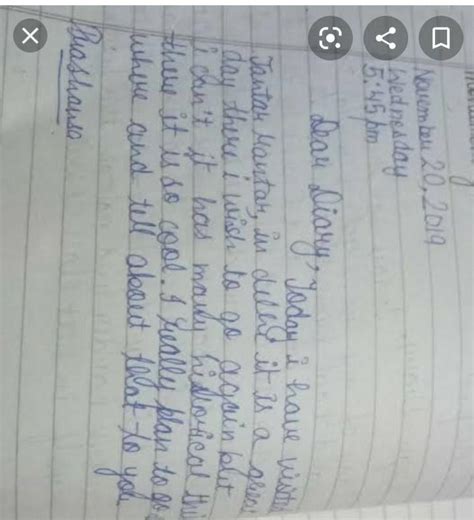 November 20, 2019
Wednesday
5:45 pm
Dear Diary,
Today i have
Jantar Mantar, in it is a
day there i wish to go again but
i can't it has many historical
there it is so cool. I really plan to go
where and tell about that to you